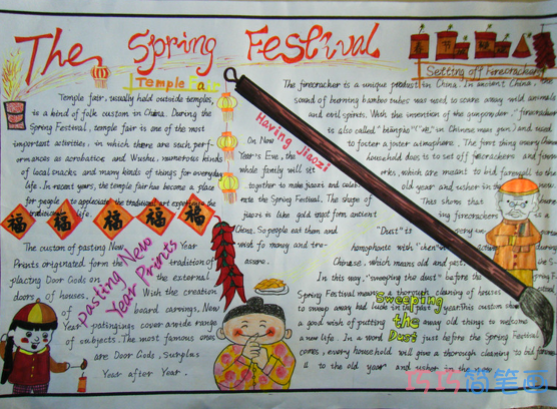 The Spring Festival
Temple Fair
Temple fair, usually held outside temples,
is a kind of folk custom in China. During the
Spring Festival, temple fair is one of the most
important activities, in which there are such perf-
ormances as acrobatics and Wushu, numerous kinds
of local snacks and many kinds of things for everyday
life. In recent years, the temple fair has become a place
for people to appreciate the traditional art experience the
traditional life
福
福
福
福
福
Pasting New
Year Prints
The custom of pasting New Year
Prints originated form the tradition of
placing Door Gods on the external
doors of houses. With the creation
of board carvings, New
Year paintings cover a wide range
of subjects. The most famous ones
are Door Gods, Surplus
Year after Year.
Having jiaozi
On New
Year's Eve, the
whole family will sit
together to make jiaozi and
the Spring Festival. The shape of
jiaozi is like gold ingot from ancient
China. So people eat them and
wish fo money and tre-
asure.
Setting off Firecrackers
The firecracker is a unique product in China. In ancient China, the
sound of burning bamboo tubes was used to scare away wild animals
and evil spirits. With the invention of the gunpowder, "firecracker
is also called" in Chinese
to foster a joyer atmosphere. The first thing every Chinese
household does is to set off firecrackers and
which are meant to bid farewell to the
old year and usher in the
This shows that
firecrackers is
Sweeping
the
Dust
"Dust" is
homophonic with "chen"
Chinese, which means old and past.
In this way, "sweeping the dust" before the
Spring Festival means a thorough cleaning of houses
to sweep away bad luck in the past year. This custom shows
a good wish of putting away old things to welcome
a new life. In a word, just before the Spring Festival
comes, every household will give a thorough cleaning to bid farewell
to the old year and usher in the new
巧巧简笔画